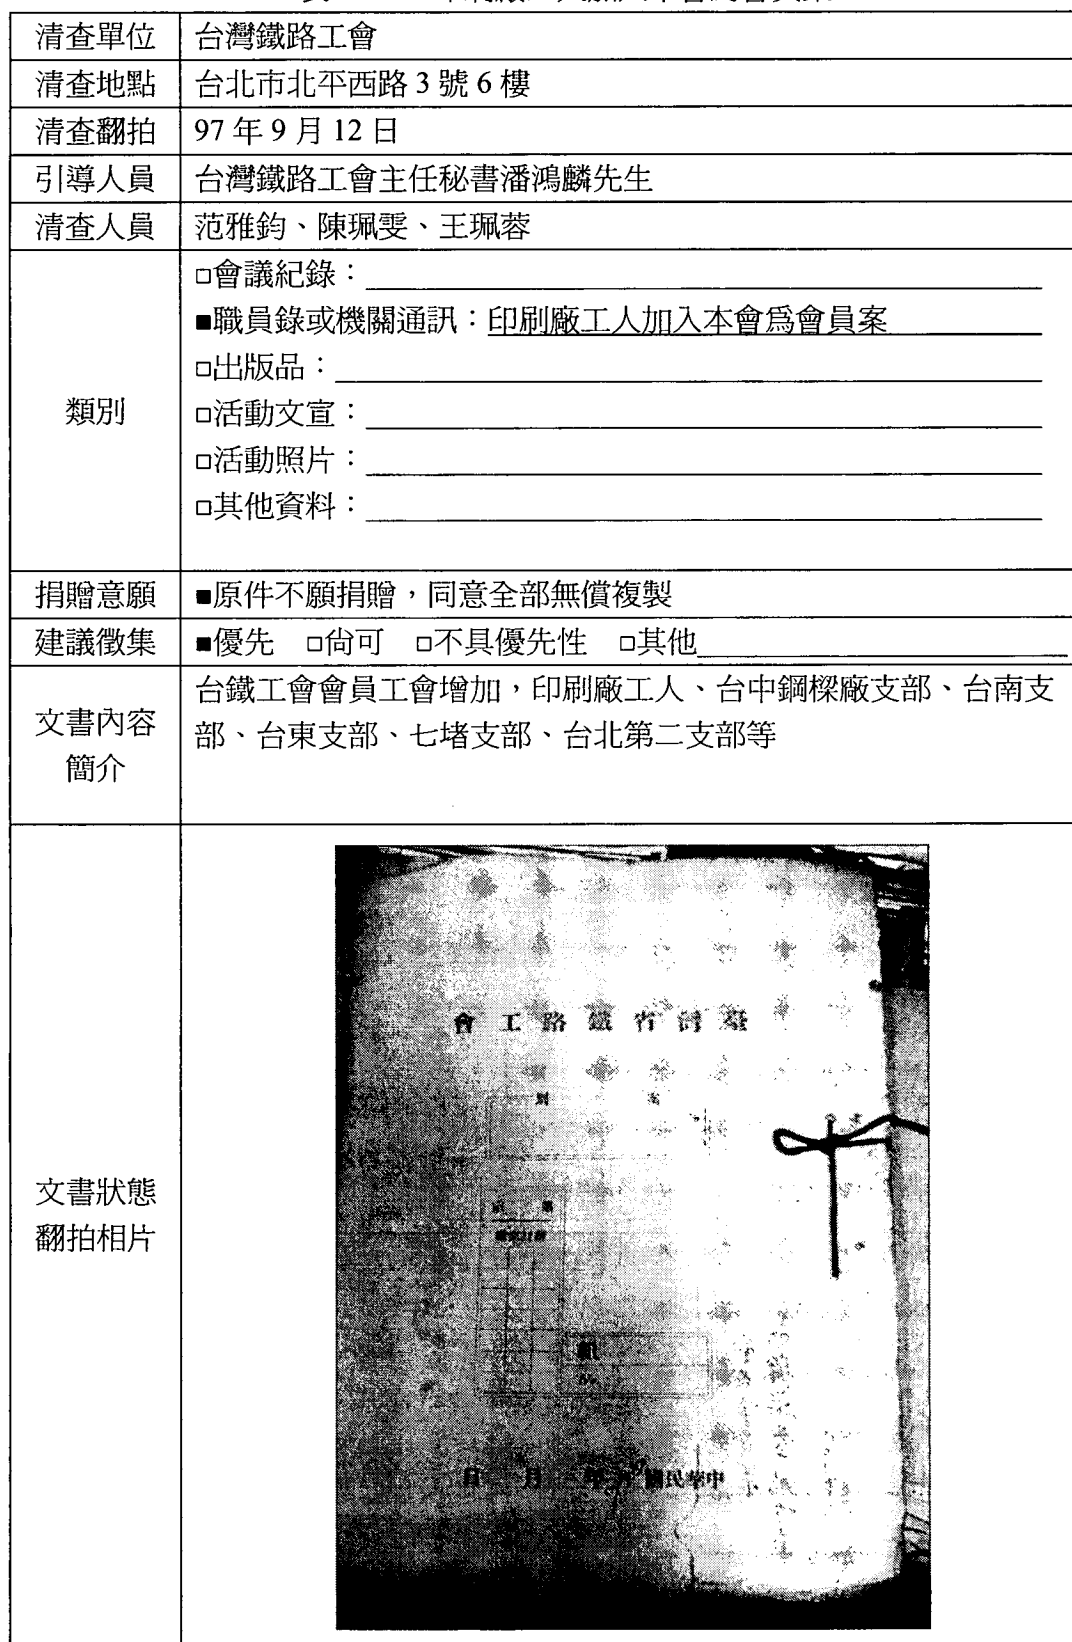 清查單位 台灣鐵路工會
清查地點 台北市北平西路 3 號 6 樓
清查翻拍 97 年 9 月 12 日
引導人員 台灣鐵路工會主任秘書潘鴻麟先生
清查人員 范雅鈞、陳珮雯、王珮蓉
類別
□會議紀錄：
■職員錄或機關通訊：印刷廠工人加入本會爲會員案
□出版品：
□活動文宣：
□活動照片：
□其他資料：
捐贈意願 ■原件不願捐贈，同意全部無償複製
建議徵集 ■優先 □尙可 □不具優先性 □其他
文書內容
簡介
台鐵工會會員工會增加，印刷廠工人、台中鋼樑廠支部、台南支
部、台東支部、七堵支部、台北第二支部等
文書狀態
翻拍相片
會工路鐵省灣臺
日 月 年 國民華中